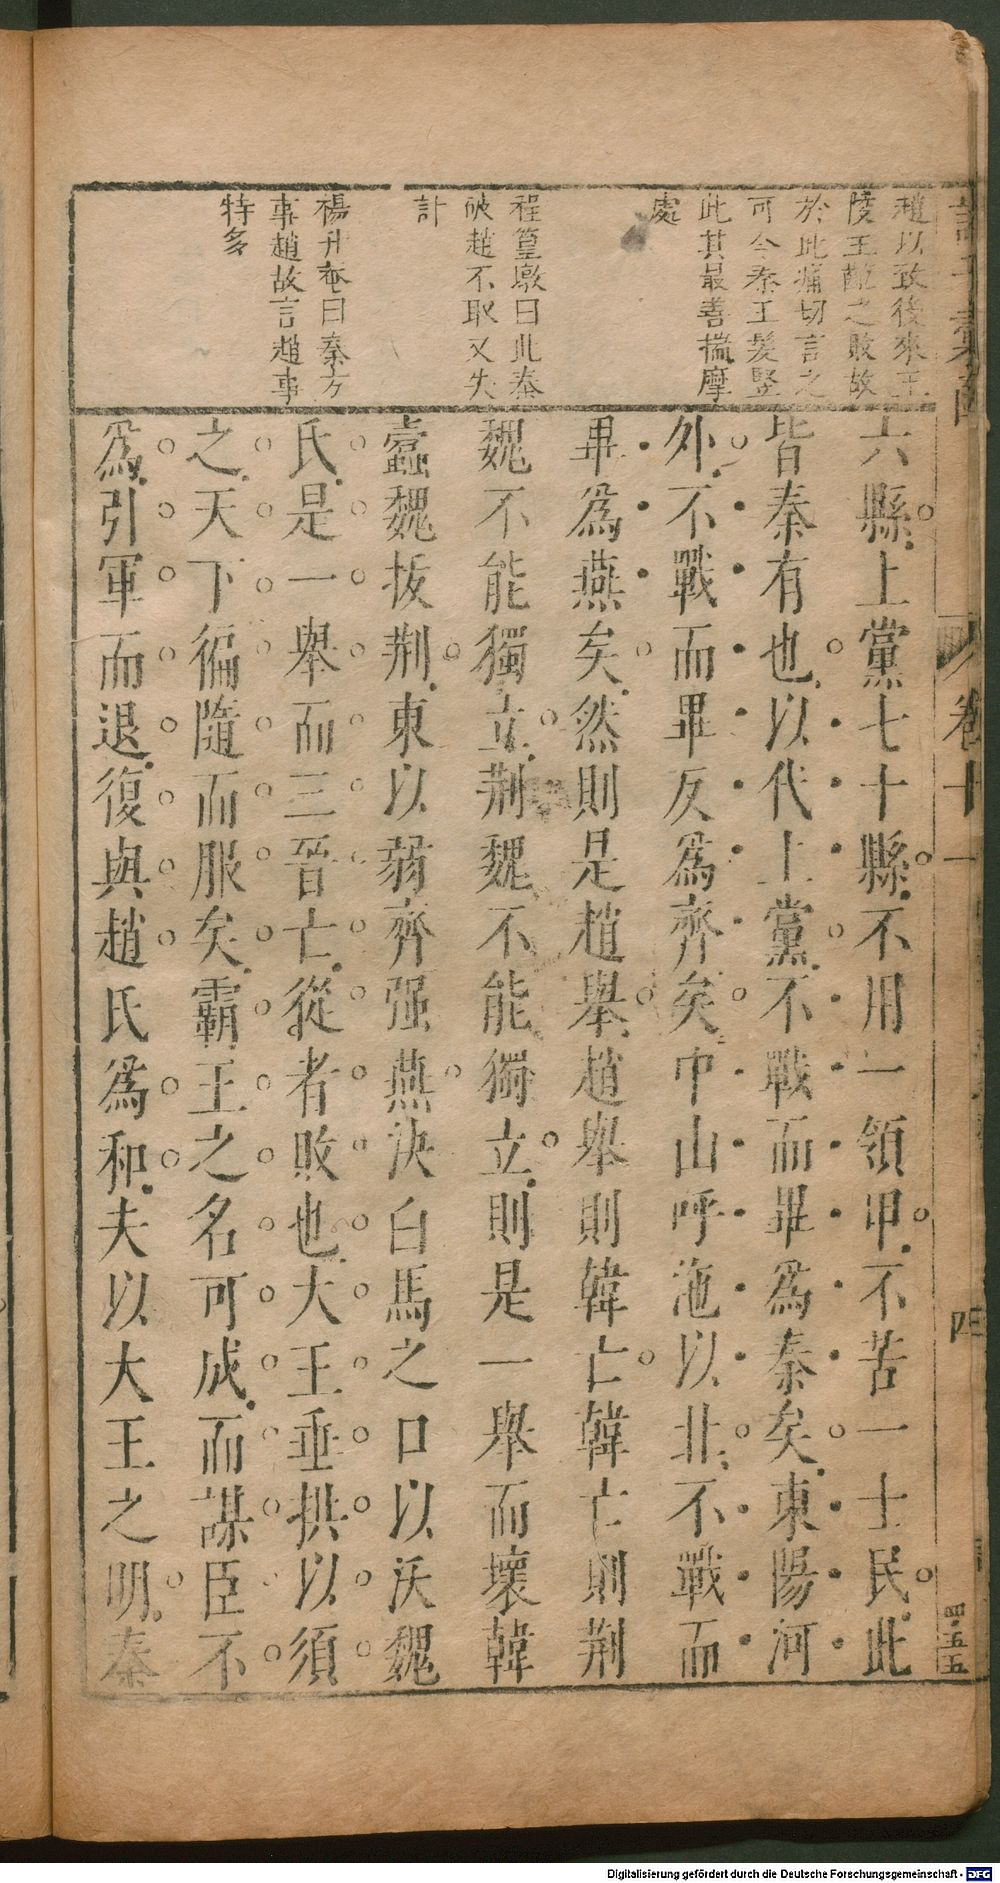 趙以敢後來王
陵王齕之敗故
於此痛切言之
可令秦王髮竪
此其最善揣摩
處
程篁墩曰此秦
破趙不取又失
計
楊升菴曰秦方
事趙故言趙事
特多
六縣上黨七十縣不用一領甲不苦一士民此
皆秦有也以代上黨不戰而畢爲秦矣東陽河
外不戰而畢反爲齊矣中山呼沲以北不戰而
畢爲燕矣然則是趙舉趙舉則韓亡韓亡則荆
魏不能獨立荆魏不能獨立則是一舉而壞韓
蠹魏拔荆東以弱齊强燕決白馬之口以沃魏
氏是一舉而三晉亡從者敗也大王垂拱以須
之天下徧隨而服矣霸王之名可成而謀臣不
爲引軍而退復與趙氏爲和夫以大王之明秦
卷十一
四
四五五
Digitalisierung gefördert durch die Deutsche Forschungsgemeinschaft - DFG